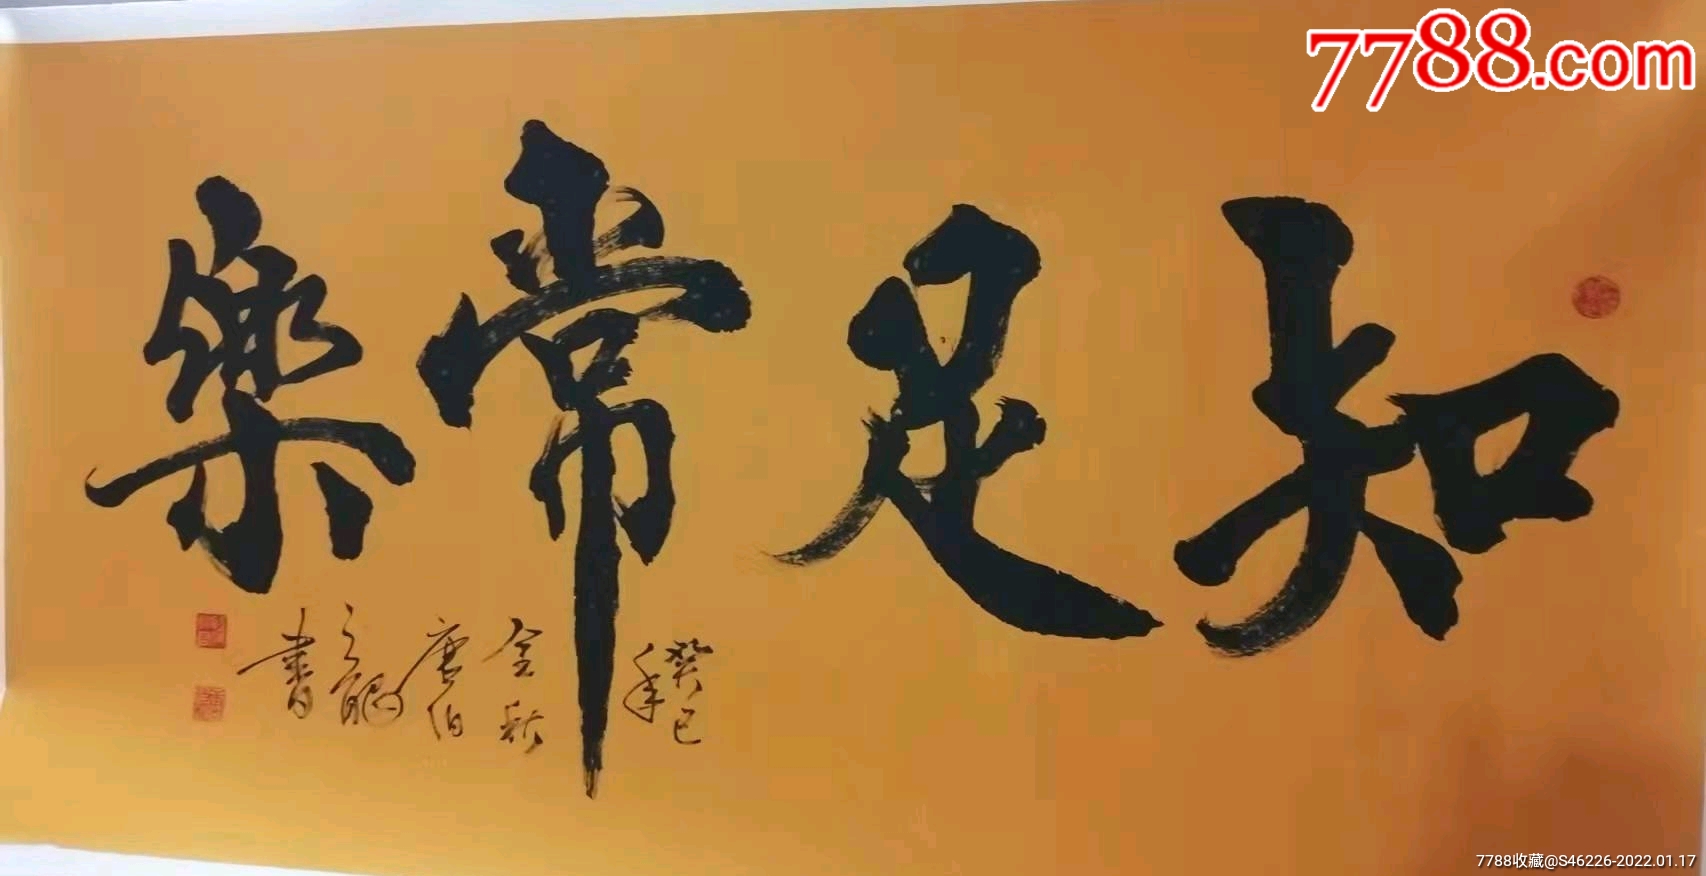 7788.com
知足常樂
癸巳
年
金秋
唐伯
書
7788收藏@S46226-2022.01.17